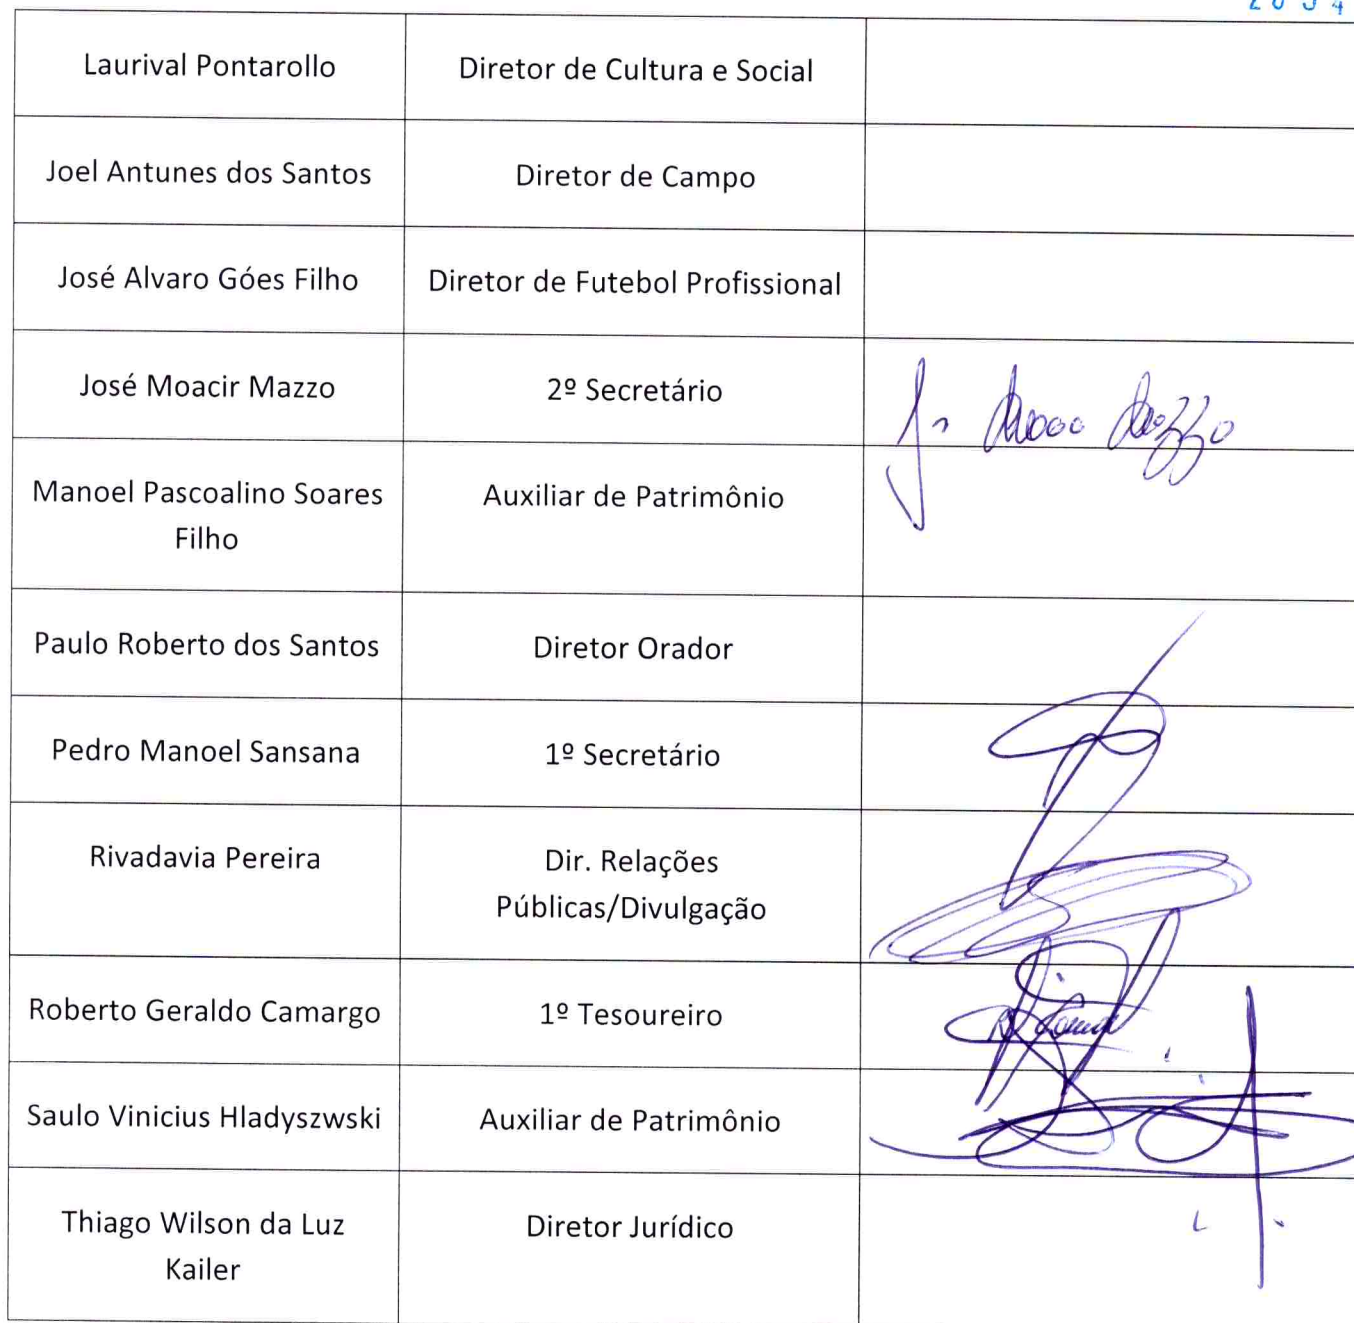 Laurival Pontarollo
Diretor de Cultura e Social
Joel Antunes dos Santos
Diretor de Campo
José Alvaro Góes Filho
Diretor de Futebol Profissional
José Moacir Mazzo
2º Secretário
Manoel Pascoalino Soares
Filho
Auxiliar de Patrimônio
Paulo Roberto dos Santos
Diretor Orador
Pedro Manoel Sansana
1º Secretário
Rivadavia Pereira
Dir. Relações
Públicas/Divulgação
Roberto Geraldo Camargo
1º Tesoureiro
Saulo Vinicius Hladyszwski
Auxiliar de Patrimônio
Thiago Wilson da Luz
Kailer
Diretor Jurídico